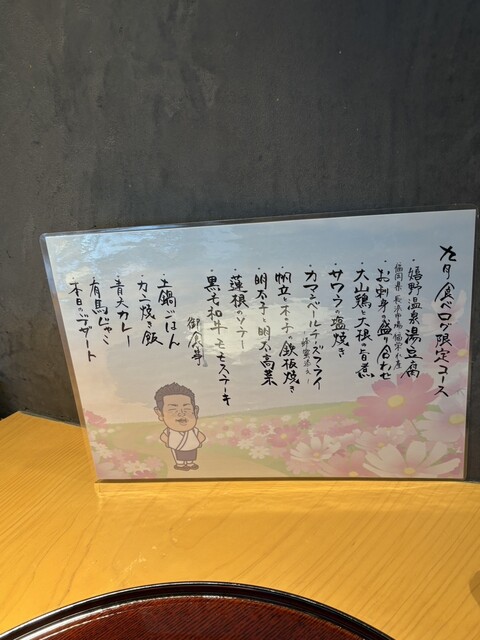 九月 食べログ限定コース
・嬉野温泉湯豆腐
福岡県 長浜市場
・お刺身の盛り合わせ
・大山鶏と大根の旨煮
・サワラの塩焼き
・カマンベールチーズフライ
・帆立と木の子の鉄板焼き
明太子と明太高菜
・蓮根のソテー
・黒毛和牛モモステーキ
御食事
・土鍋ごはん
カニ焼き飯
青大カレー
有馬じゃこ
・本日のデザート